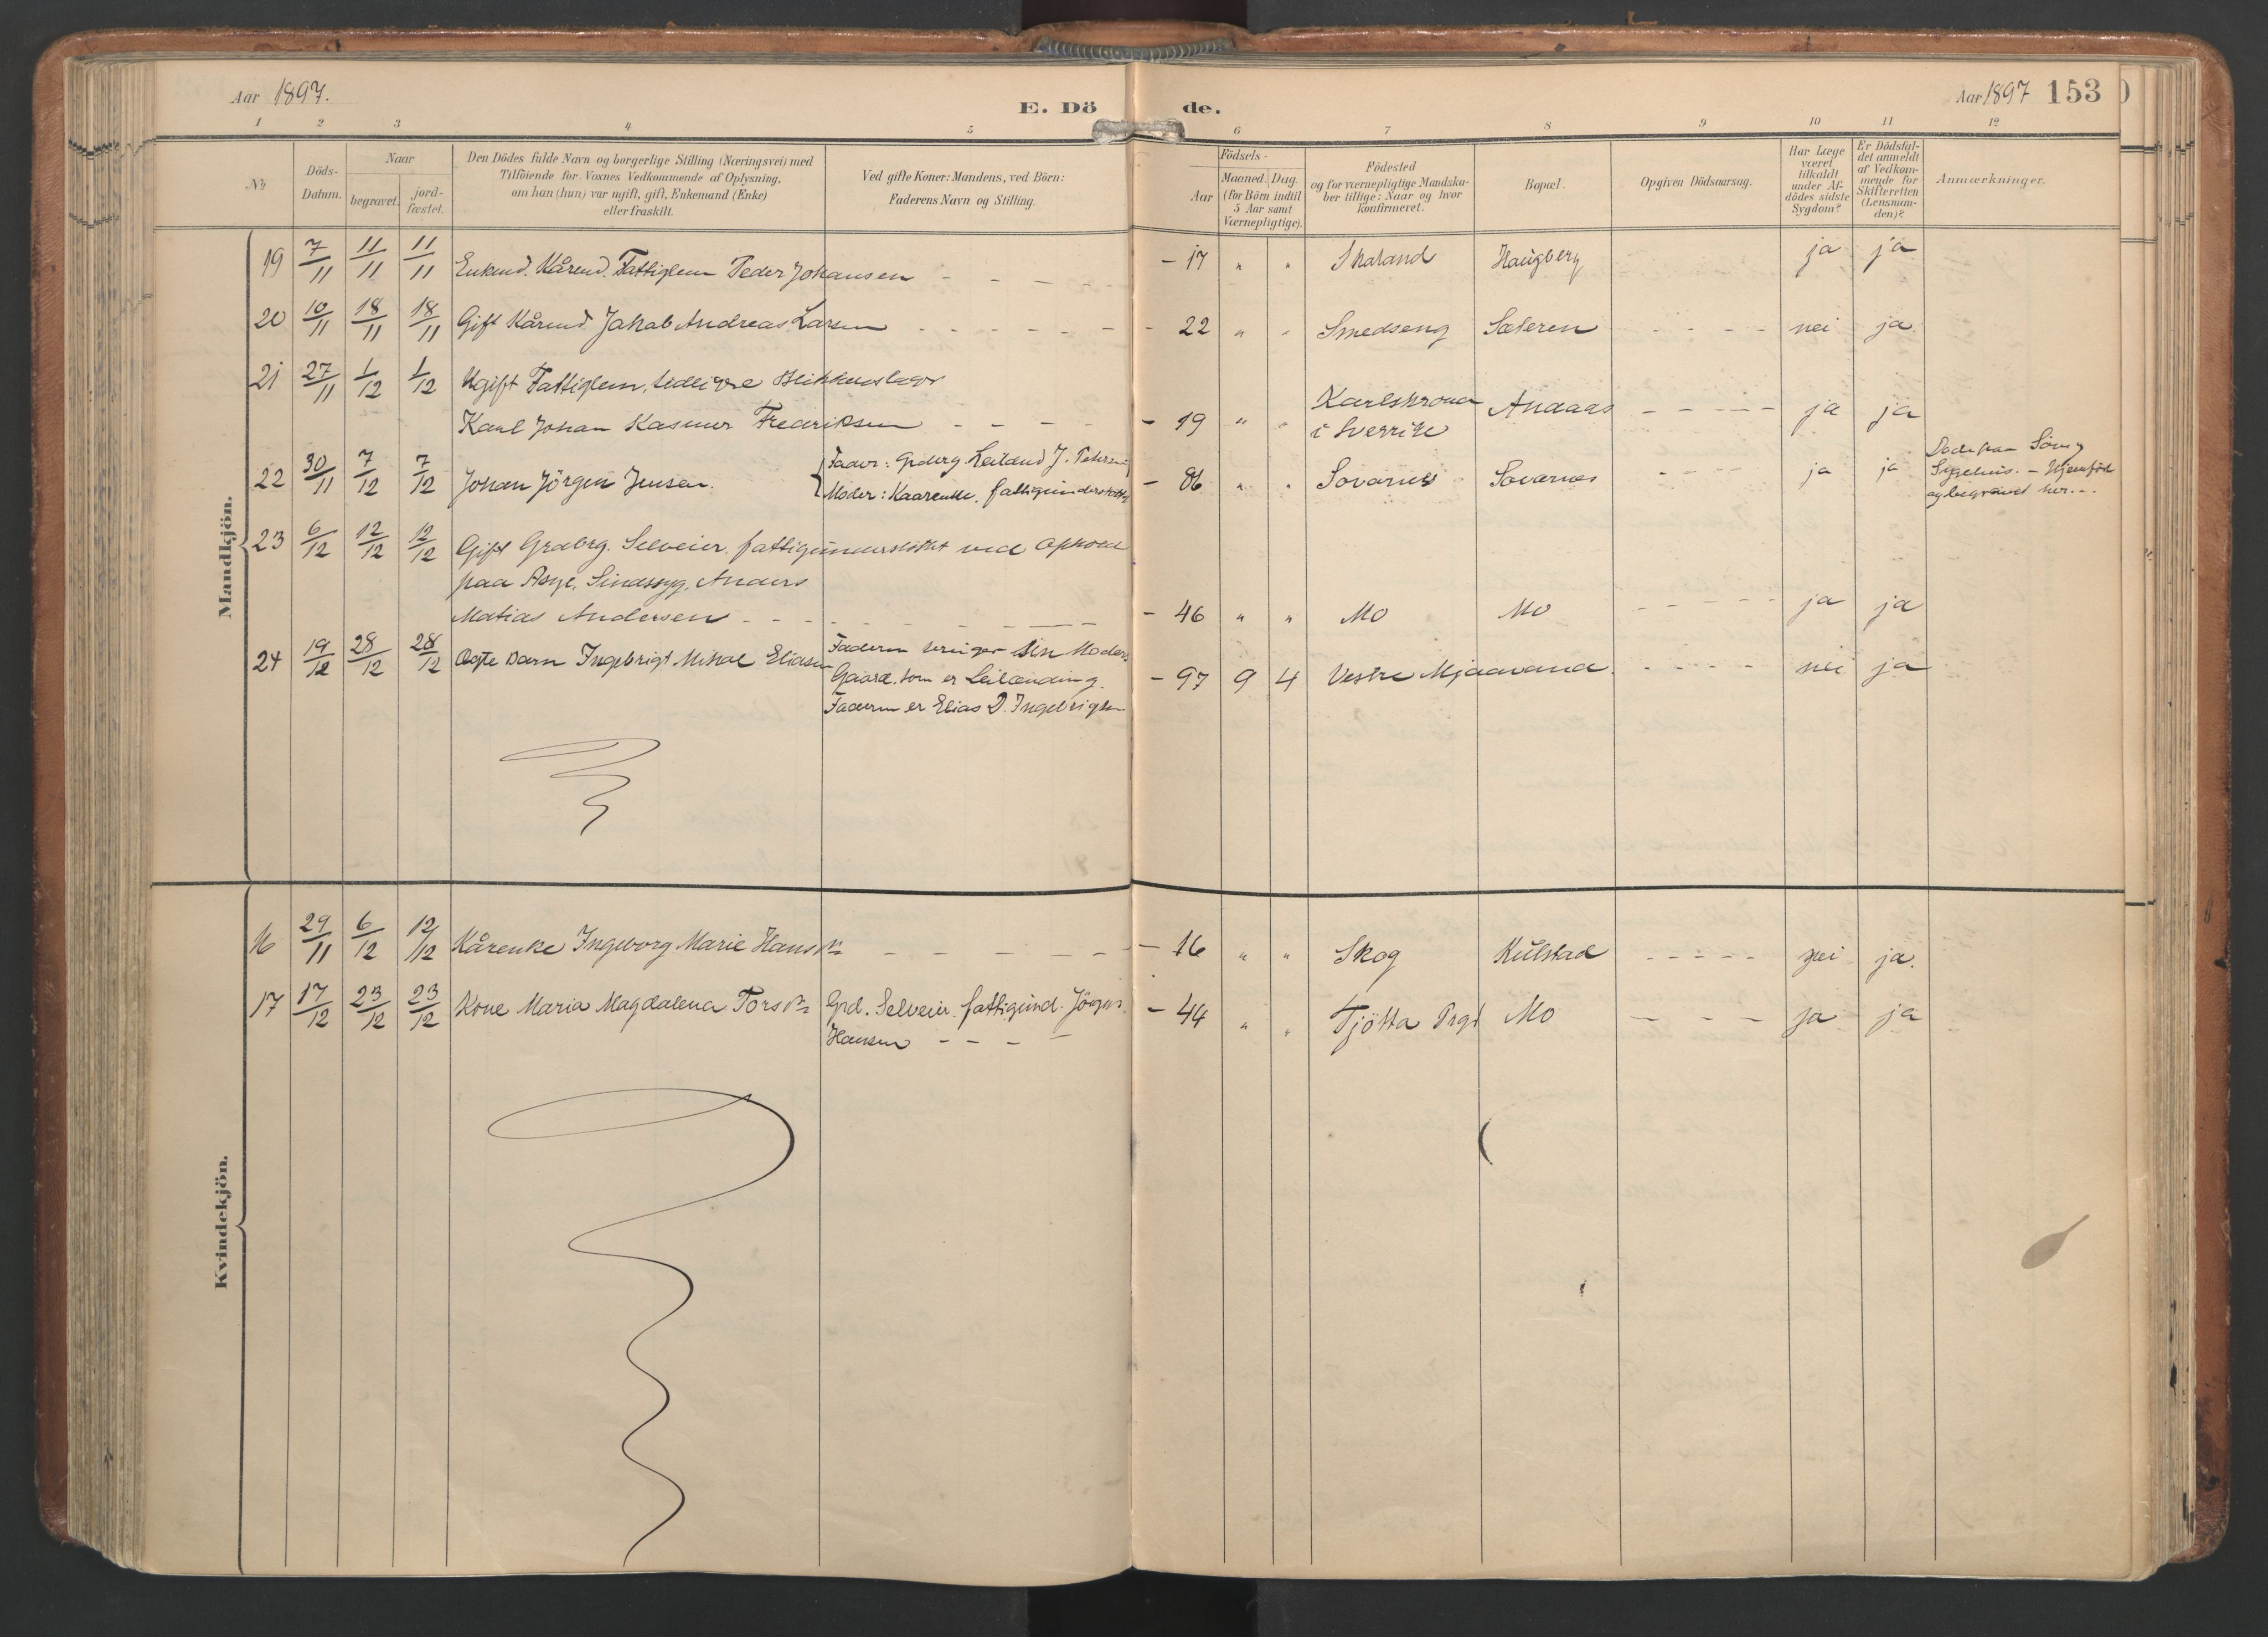 Aar 1897.
E. Dö de.
Aar 1897 153
1 2 3 4 5 6 7 8 9 10 11 12
No
Döds-
Datum.
Naar
begravet.
jord-
fæstet.
Den Dödes fulde Navn og borgerlige Stilling (Næringsvei) med
Tilföiende for Voxnes Vedkommende af Oplysning,
om han (hun) var ugift, gift, Enkemand (Enke)
eller fraskilt.
Ved gifte Koner: Mandens, ved Börn:
Faderens Navn og Stilling.
Födsels-
Aar
Maaned. Dag
(for Börn indtil
5 Aar samt
Værnepligtige).
Födested
og for værnepligtige Mandska-
ber tillige: Naar og hvor
konfirmeret.
Bopæl.
Opgiven Dödsaarsag.
Har Læge
været
tilkaldt
under Af-
dödes sidste
Sygdom?
Er Dödsfal-
det anmeldt
af Vedkom-
mende for
Skifteretten
(Lensman-
den)?
Anmærkninger.
Mandkjön.
19 7/11 11/11 11/11 Enkmd. Kårmd. Fattiglem Peder Johansen - - - - - 17 " " Skaland Haugberg ja ja
20 10/11 18/11 18/11 Gift Kårmd. Jakob Andreas Larsen - - - - - - 22 " " Smedseng Sæteren - - - - nei ja.
21 27/11 1/12 1/12 Ugift Fattiglem, tidligere Blikkenslager
Karl Johan Kasmer Fredriksen - - - - - 19 " " Karlskrona i Sverrike Andaas - - - - - ja ja
22 30/11 7/12 7/12 Johan Jörgen Jensen.
Fader: Grdbrg. Leilænd J. Petersen
Moder: Kaarenke, fattigunderstöttet
- 86 " " Sovarnes Sovarnes - - - - ja ja
Döde paa Sömn
Sygehus. - Hjemföd
og begravet her. -.
23 6/12 12/12 12/12 Gift Grdbrg. Selveier, fattigunderstöttet ved Ophold
paa Asyl. Sindssyg, Anders
Matias Andersen - - - - - - - - 46 " " Mo Mo - - - - - ja ja
24 19/12 28/12 28/12 Ægte Barn Ingebrigt Mikal Eliasen
Faderen bruger sin Moders
Gaard, som er Leilænding.
Faderen er Elias D. Ingebrigtsen
- 97 9 4 Vestre Mjaavand. - - - - nei ja
Kvindekjön.
16 29/11 6/12 12/12 Kårenke Ingeborg Marie Hansdtr - - - - - - 16 " " Skog Kulstad - - - - - nei ja.
17 17/12 23/12 23/12 Kone Maria Magdalena Torsdtr Grd. Selveier fattigund. Jörgen
Hansen - - - -
- 44 " " Tjötta Prgd Mo - - - - ja ja